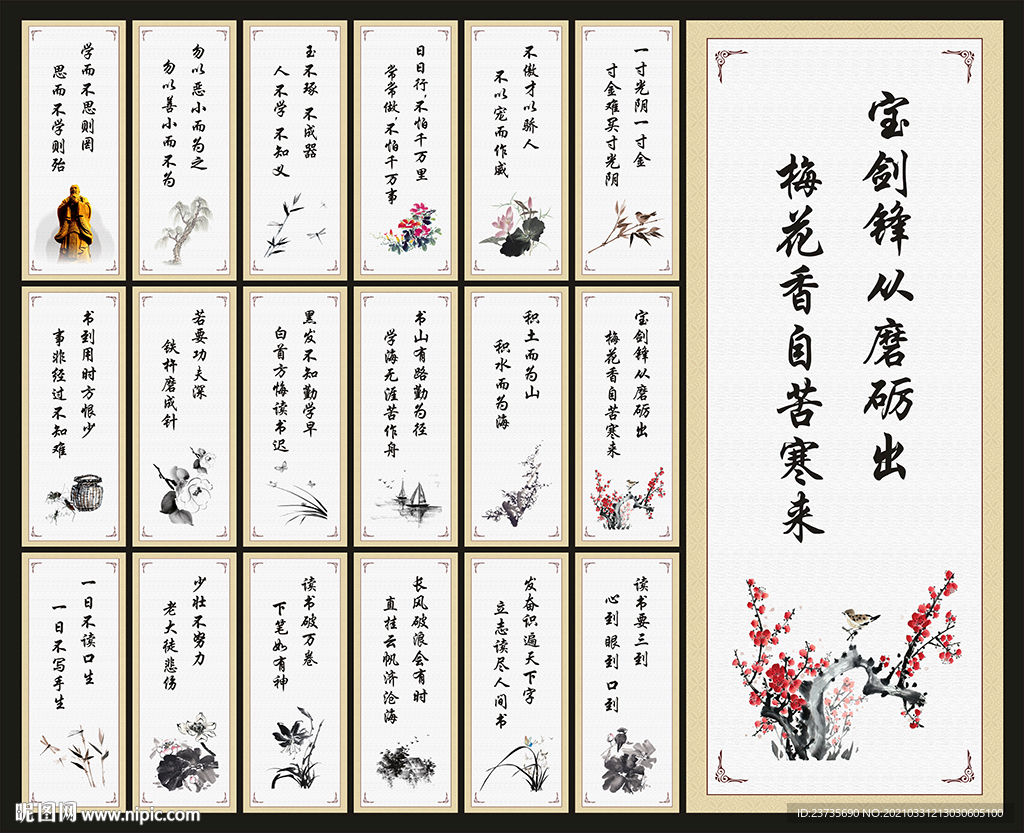 学而不思则罔
思而不学则殆
勿以恶小而为之
勿以善小而不为
玉不琢 不成器
人不学 不知义
日日行,不怕千万里
常常做,不怕千万事
不傲才以骄人
不以宠而作威
一寸光阴一寸金
寸金难买寸光阴
书到用时方恨少
事非经过不知难
若要功夫深
铁杵磨成针
黑发不知勤学早
白首方悔读书迟
书山有路勤为径
学海无涯苦作舟
积土而为山
积水而为海
宝剑锋从磨砺出
梅花香自苦寒来
一日不读口生
一日不写手生
少壮不努力
老大徒悲伤
读书破万卷
下笔如有神
长风破浪会有时
直挂云帆济沧海
发奋识遍天下字
立志读尽人间书
读书要三到
心到 眼到 口到
宝剑锋从磨砺出
梅花香自苦寒来
昵图网 www.nipic.com
ID:23735690 NO:20210331213030605100